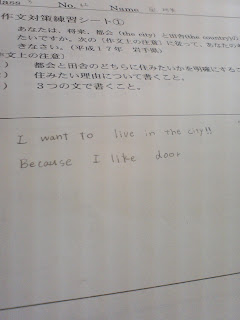 lass No. Name
作文対策練習シート①
あなたは、将来、都会(the city)と田舎(the country)の
たいですか。次の〈作文上の注意〉に従って、あなたの
きなさい。(平成17年 岩手県)
作文上の注意〉
) 都会と田舎のどちらに住みたいかを明確にするこ
) 住みたい理由について書くこと。
) 3つの文で書くこと。
I want to live in the city!!
Because I like door